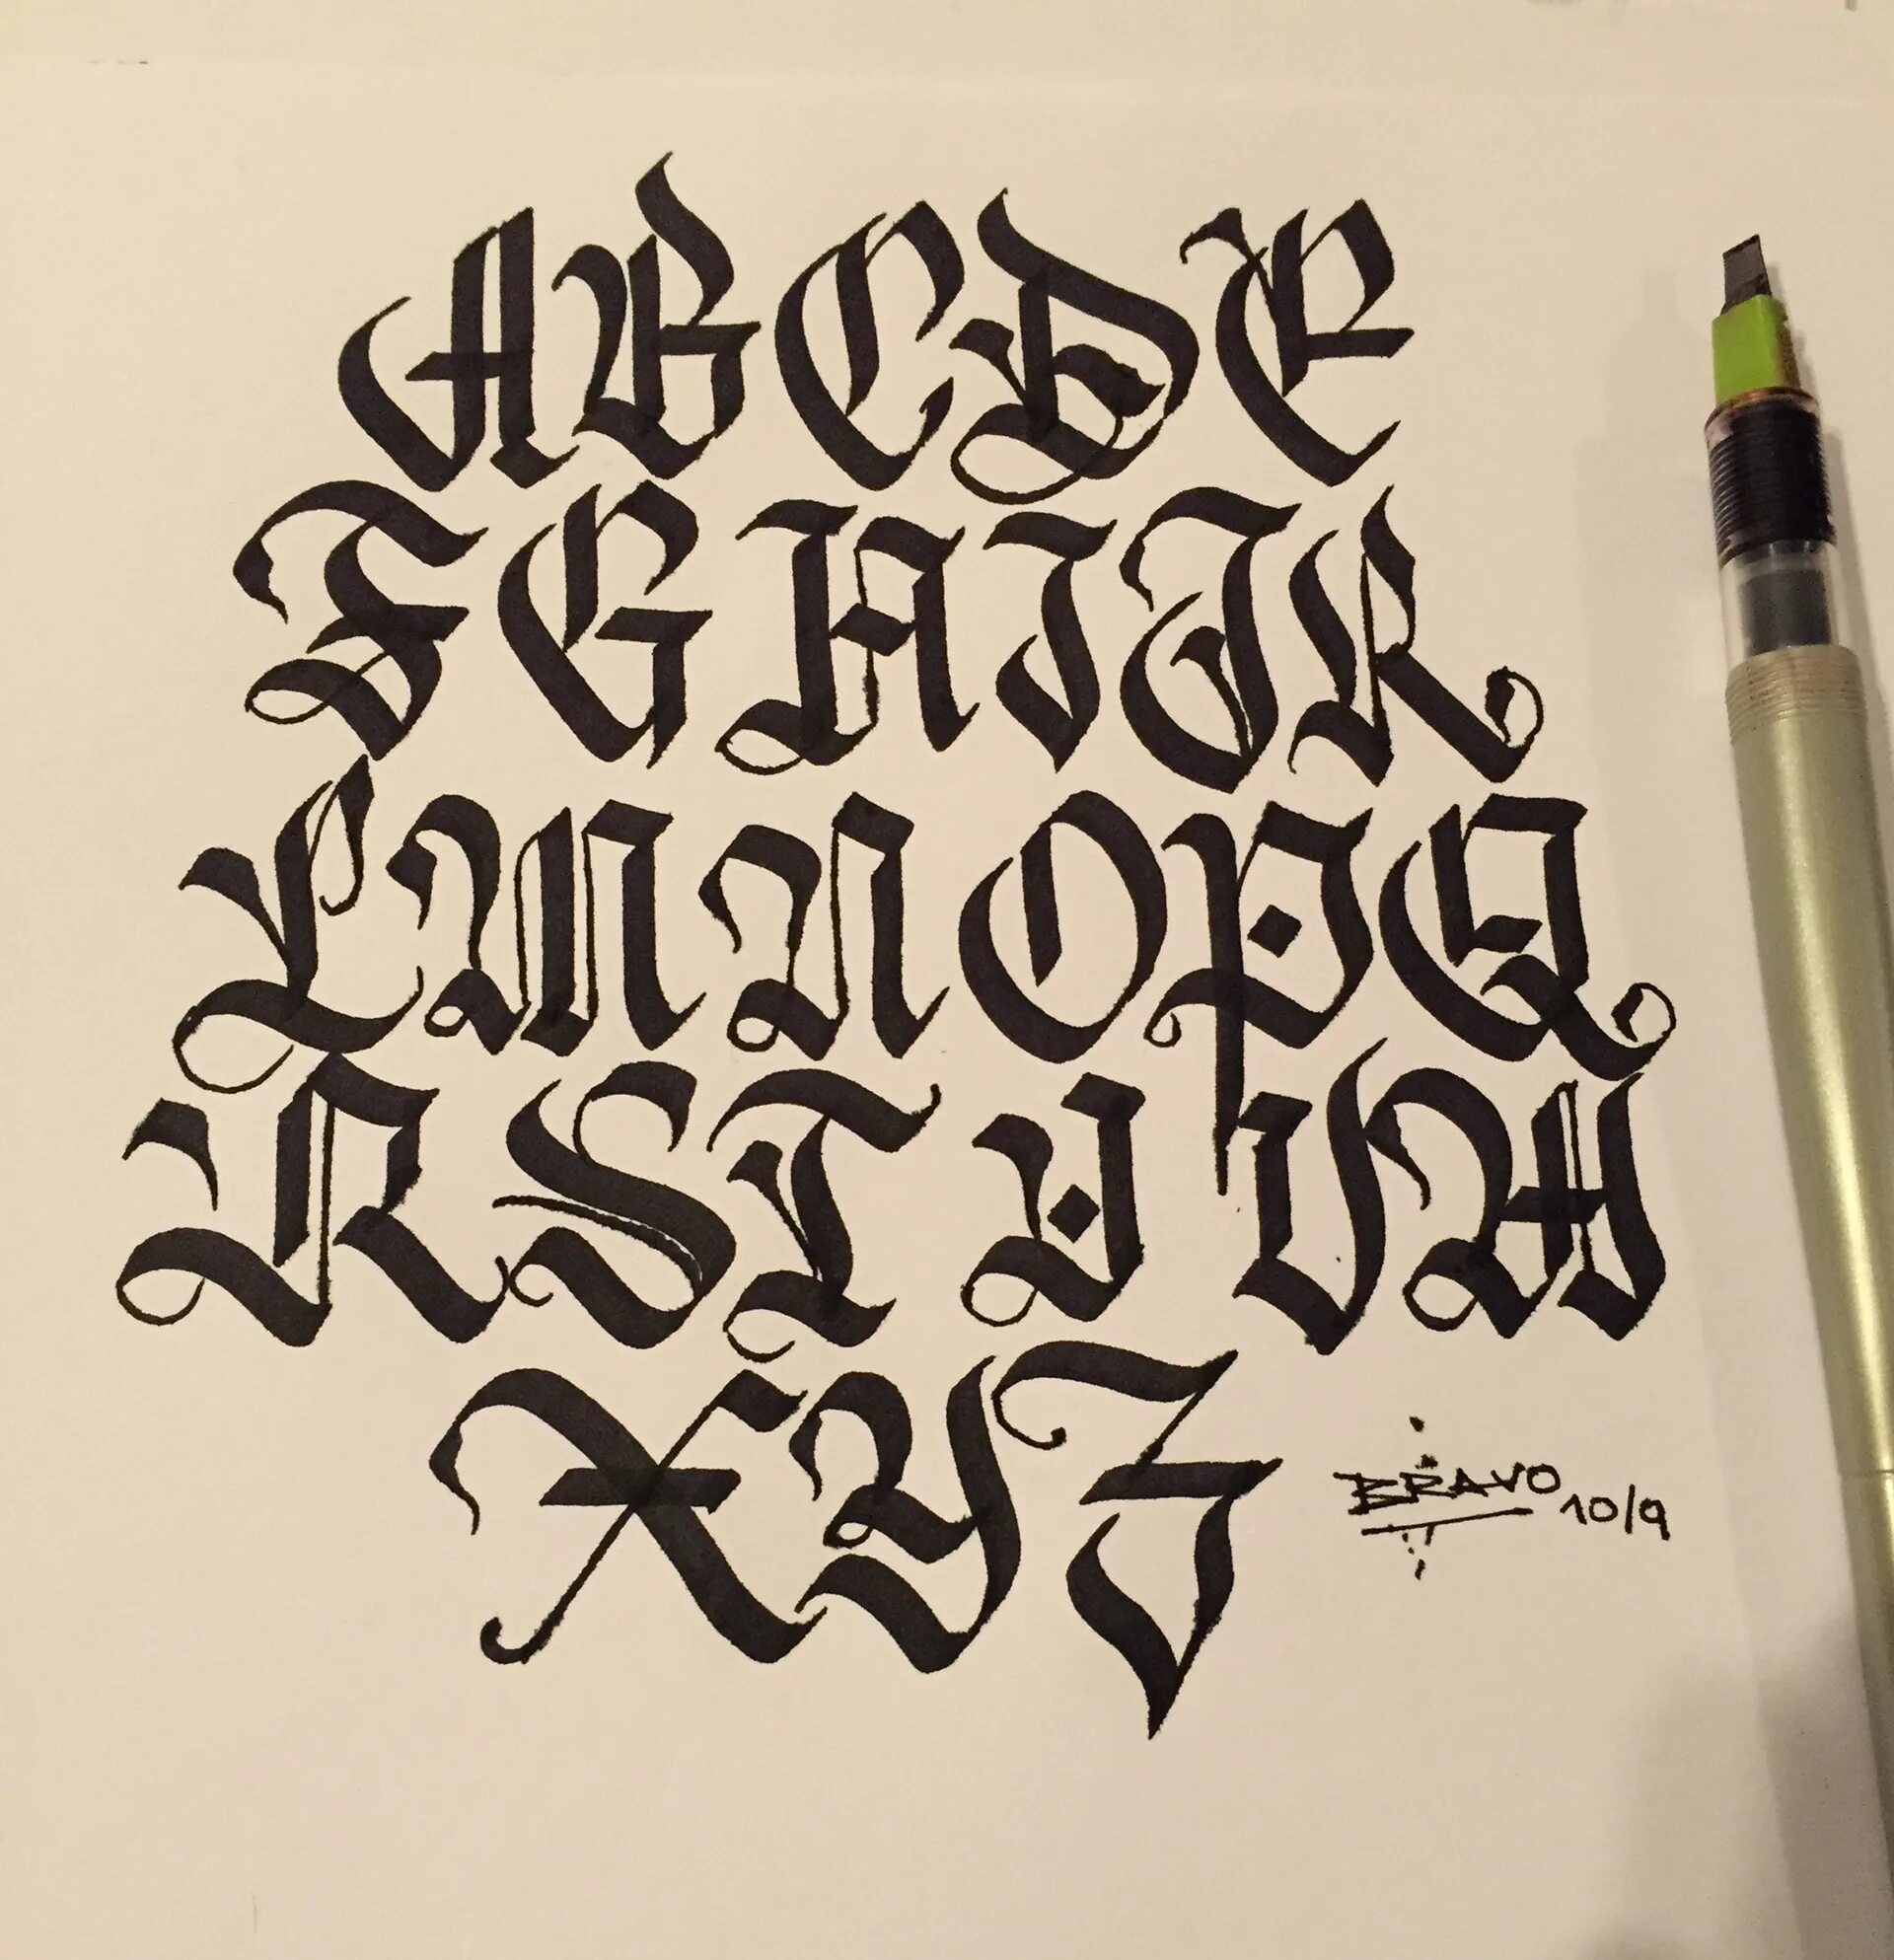 ABCDE
FGHIJK
LMNOPQ
RSTUVW
XYZ
BRAVO 10/9